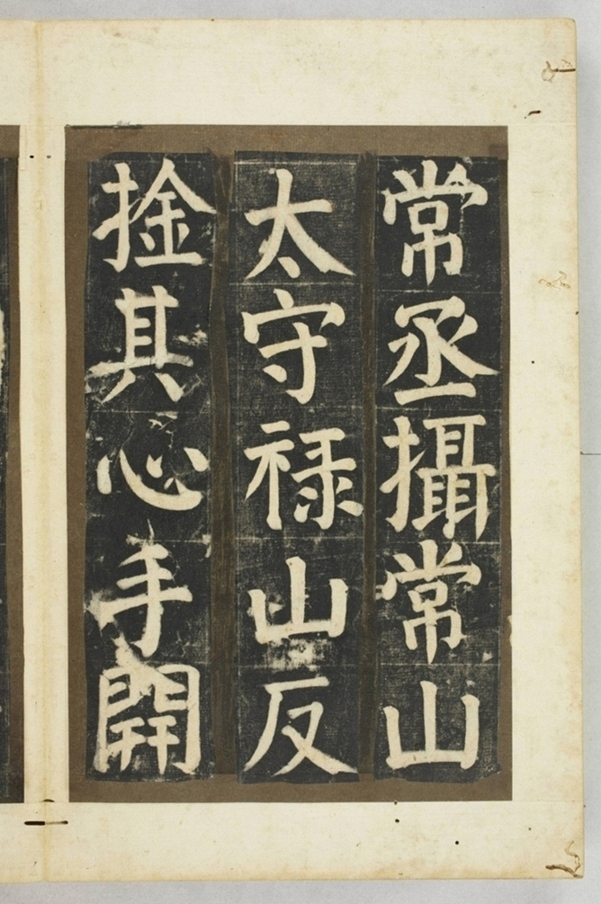 常丞攝常山
太守祿山反
捦其心手開